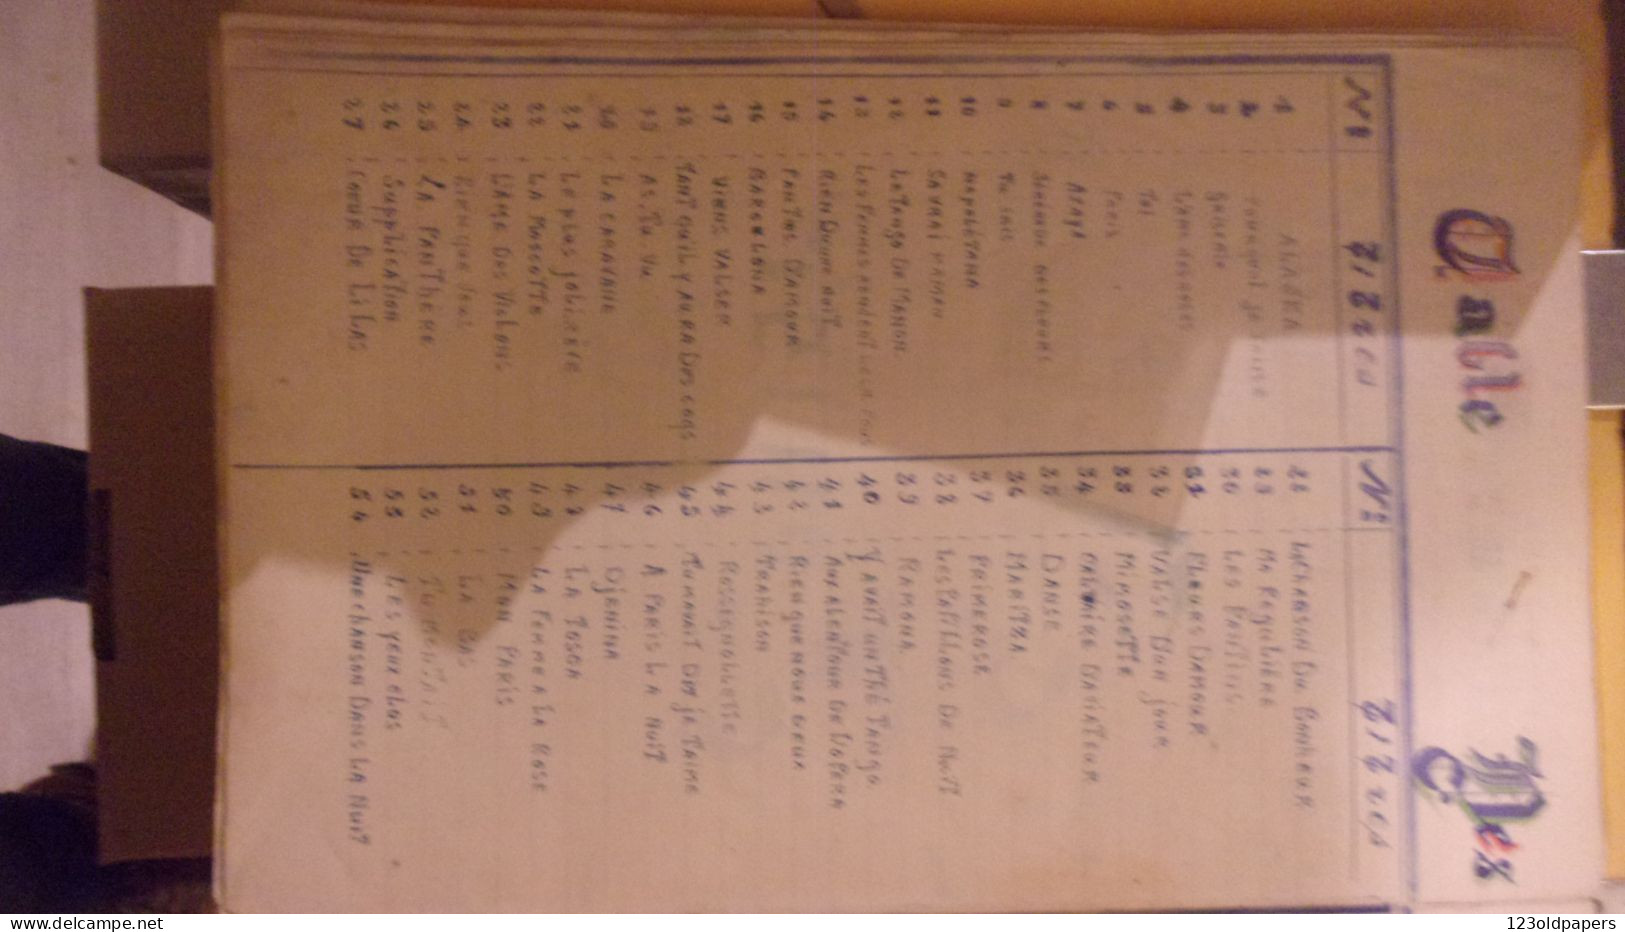 Table Des
Nº Titres
1 ALASKA
2
3
4
5 Toi
6 Paris
7
8
9 Tu sais
10 NAPOLÉTANA
11
12 Le Tango De MANON
13
14 Rien Qu'une nuit
15
16 BARCELONA
17 VIENS VALSER
18 TANT QU'IL y AURA DES
19 AS. TU. VU
20 LA CARAVANE
21 Le plus joli
22 LA MASCOTTE
23 L'AME DES VIOLONS
24
25 LA PANTHÈRE
26 SUPPLICATION
27 CŒUR DE LILAS
Nº Titres
28 LA CHANSON DU BONHEUR
29 MA REGULIÈRE
30 LES PANTINS
31 FLEURS D'AMOUR
32 VALSE D'UN jOUR
33 MIMOSETTE
34 D'AVIATEUR
35 DANSE
36 MARITZA
37 PRIMEROSE
38 LES PAPILLONS DE NUIT
39 RAMONA
40 Y AVAIT UN THÉ TANGO
41 DE L'OPÉRA
42 RIEN QUE NOUS DEUX
43 TRAHISON
44 ROSSIGNOLETTE
45 jE T'AIME
46 A PARIS LA NUIT
47 DjENINA
48 LA TOSCA
49 LA FEMME A LA ROSE
50 MON PARIS
51 LA BAS
52
53 LES yEUX CLOS
54 Une chanson DANS LA NUIT
123oldpapers